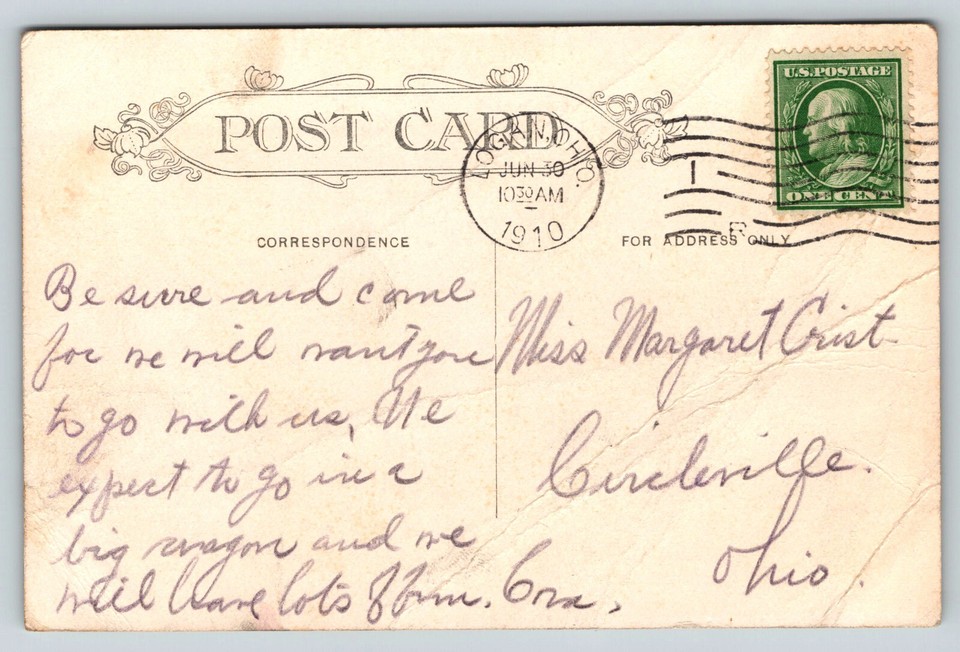 POST CARD
LOGAN, OHIO.
JUN 30
10 30 AM
1910
1
R
U.S. POSTAGE
ONE CENT
CORRESPONDENCE
FOR ADDRESS ONLY
Be sure and come
for we will want you
to go with us, We
expect to go in a
big wagon and we
will have lots of fun. Cora.
Miss Margaret Crist
Circleville.
Ohio.